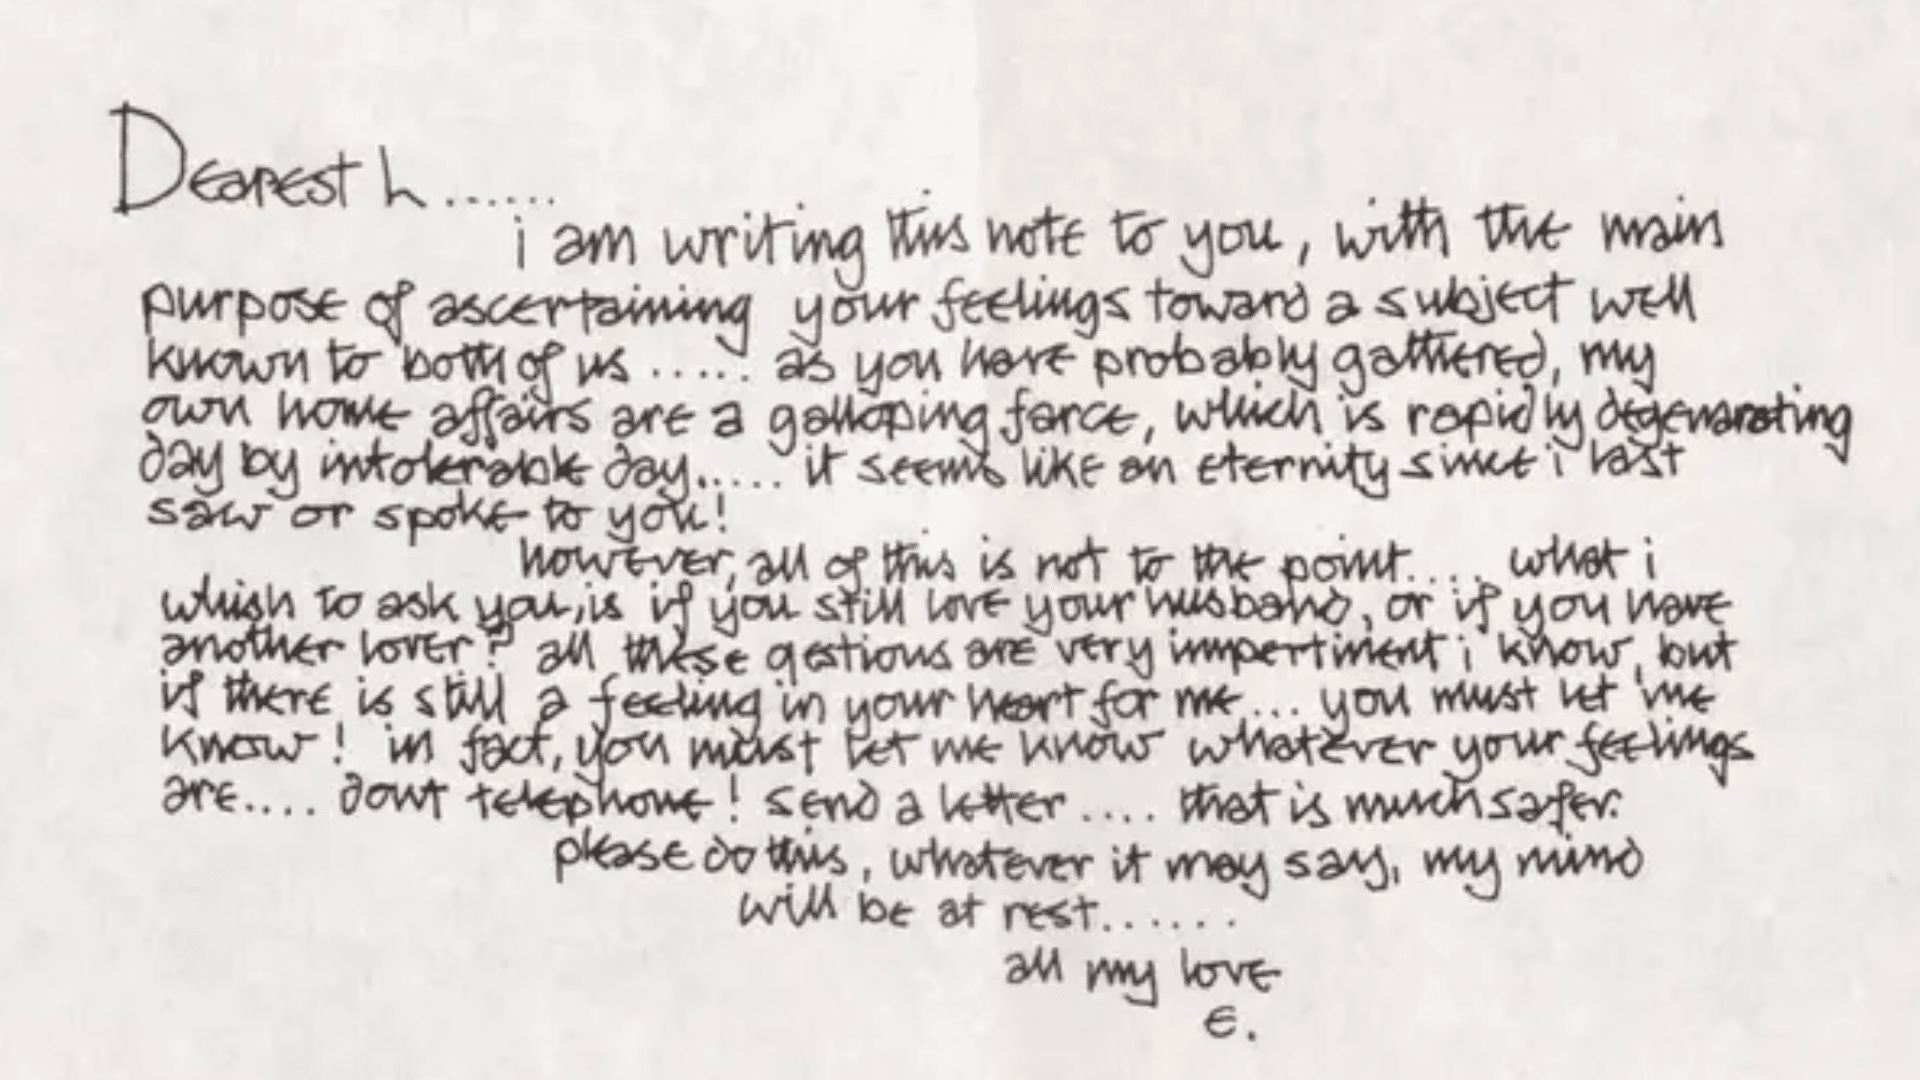 Dearest L......
i am writing this note to you, with the main
purpose of ascertaining your feelings toward a subject well
known to both of us ..... as you have probably gathered, my
own home affairs are a galloping farce, which is rapidly degenarating
day by intolerable day...... it seems like an eternity since i last
saw or spoke to you!
however, all of this is not to the point.... what i
whish to ask you, is if you still love your husband, or if you have
another lover? all these qestions are very impertinent i know, but
if there is still a feeling in your heart for me... you must let me
know! in fact, you must let me know whatever your feelings
are.... dont telephone! send a letter .... that is much safer.
please do this, whatever it may say, my mind
will be at rest......
all my love
e.